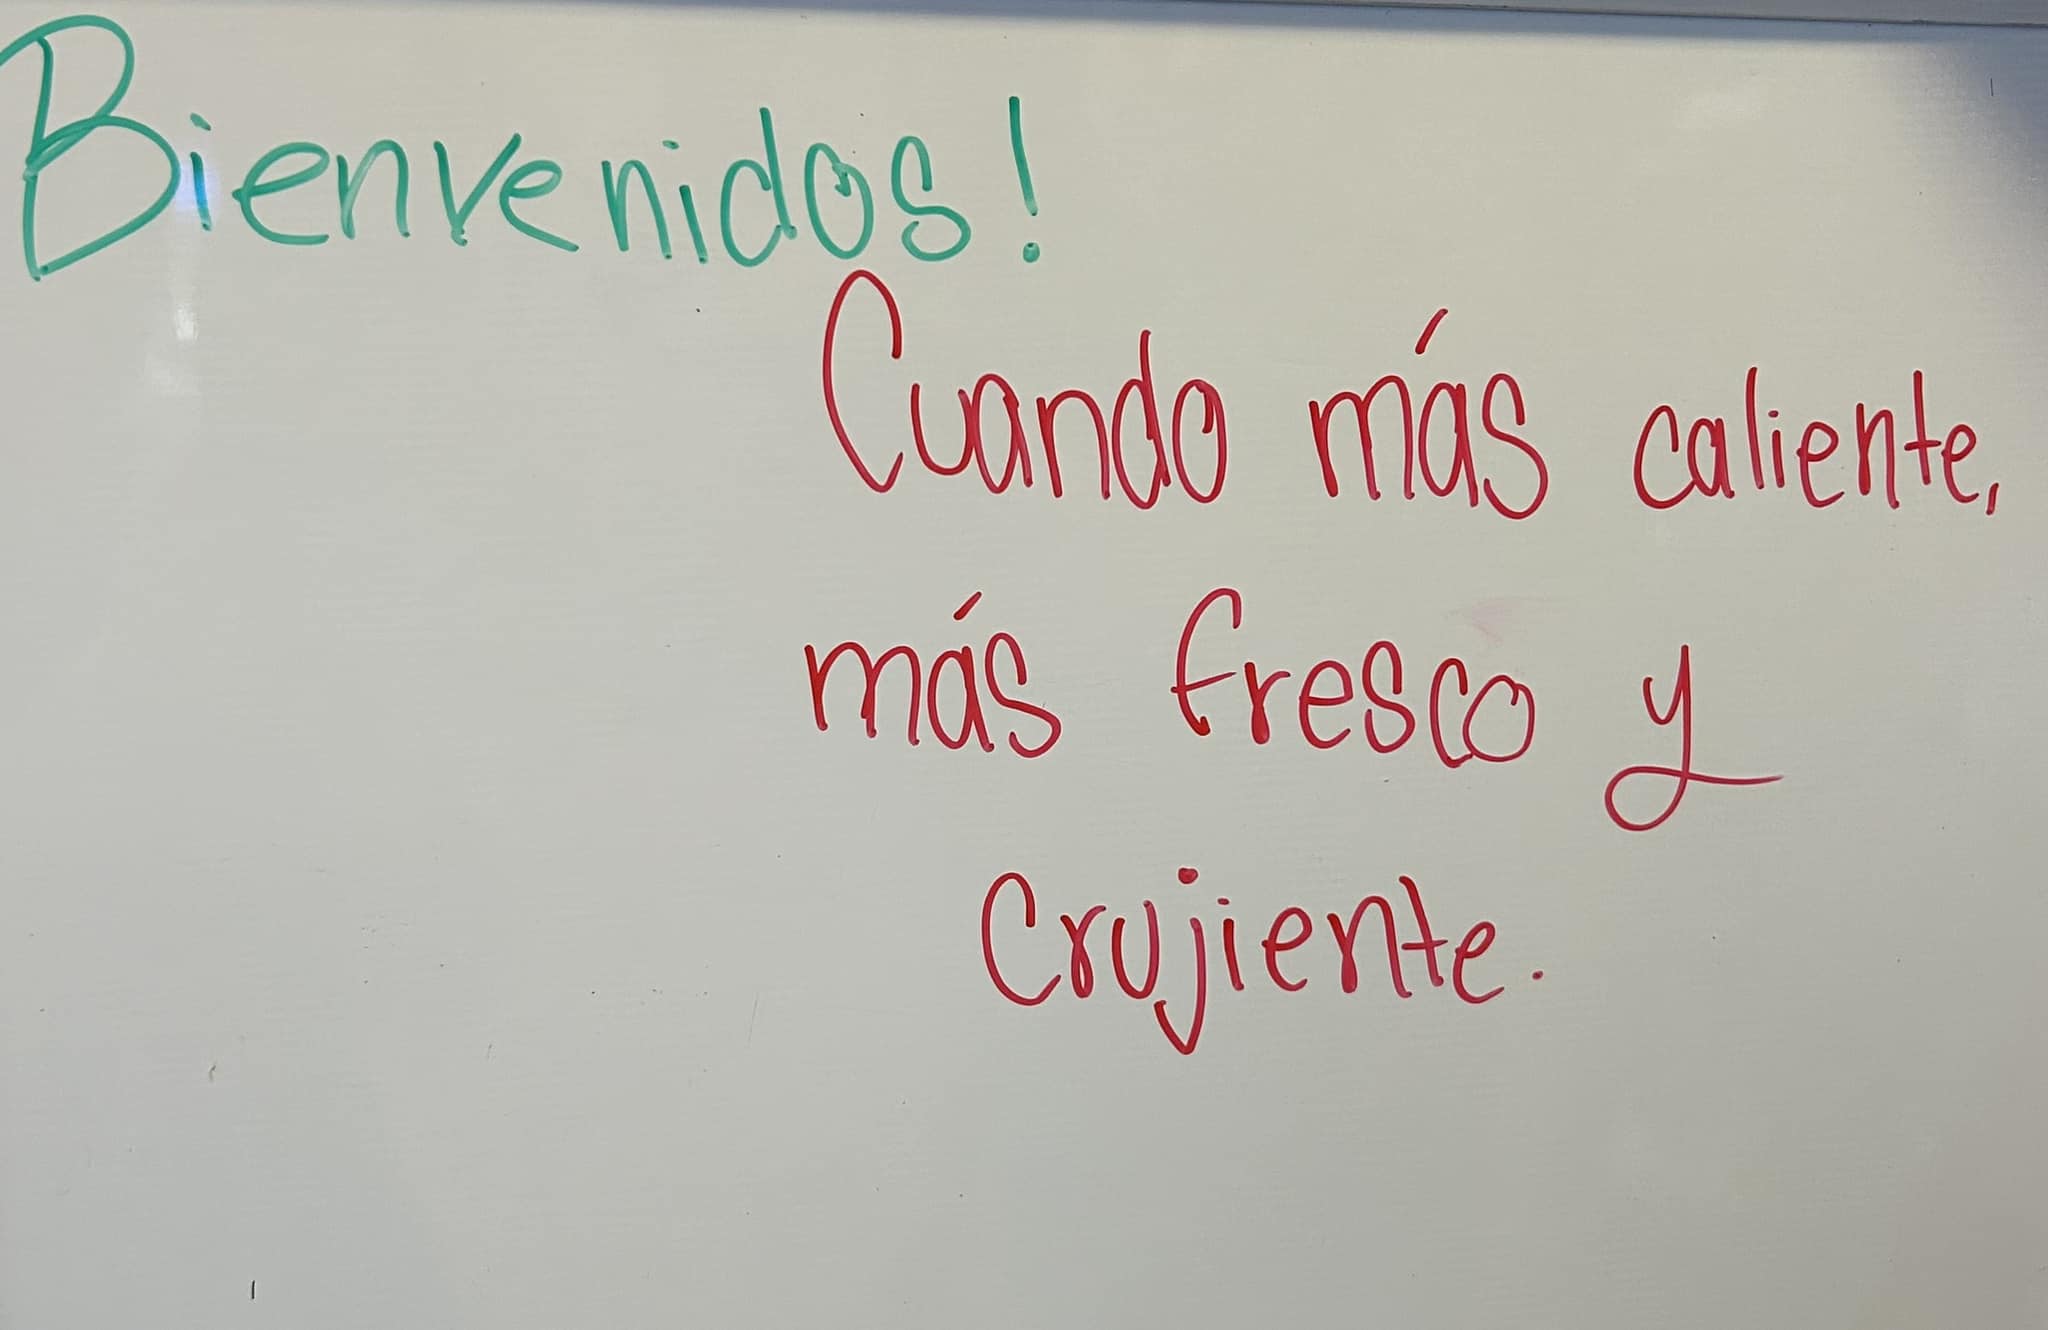 Bienvenidos!
Cuando más caliente,
más fresco y
crujiente.